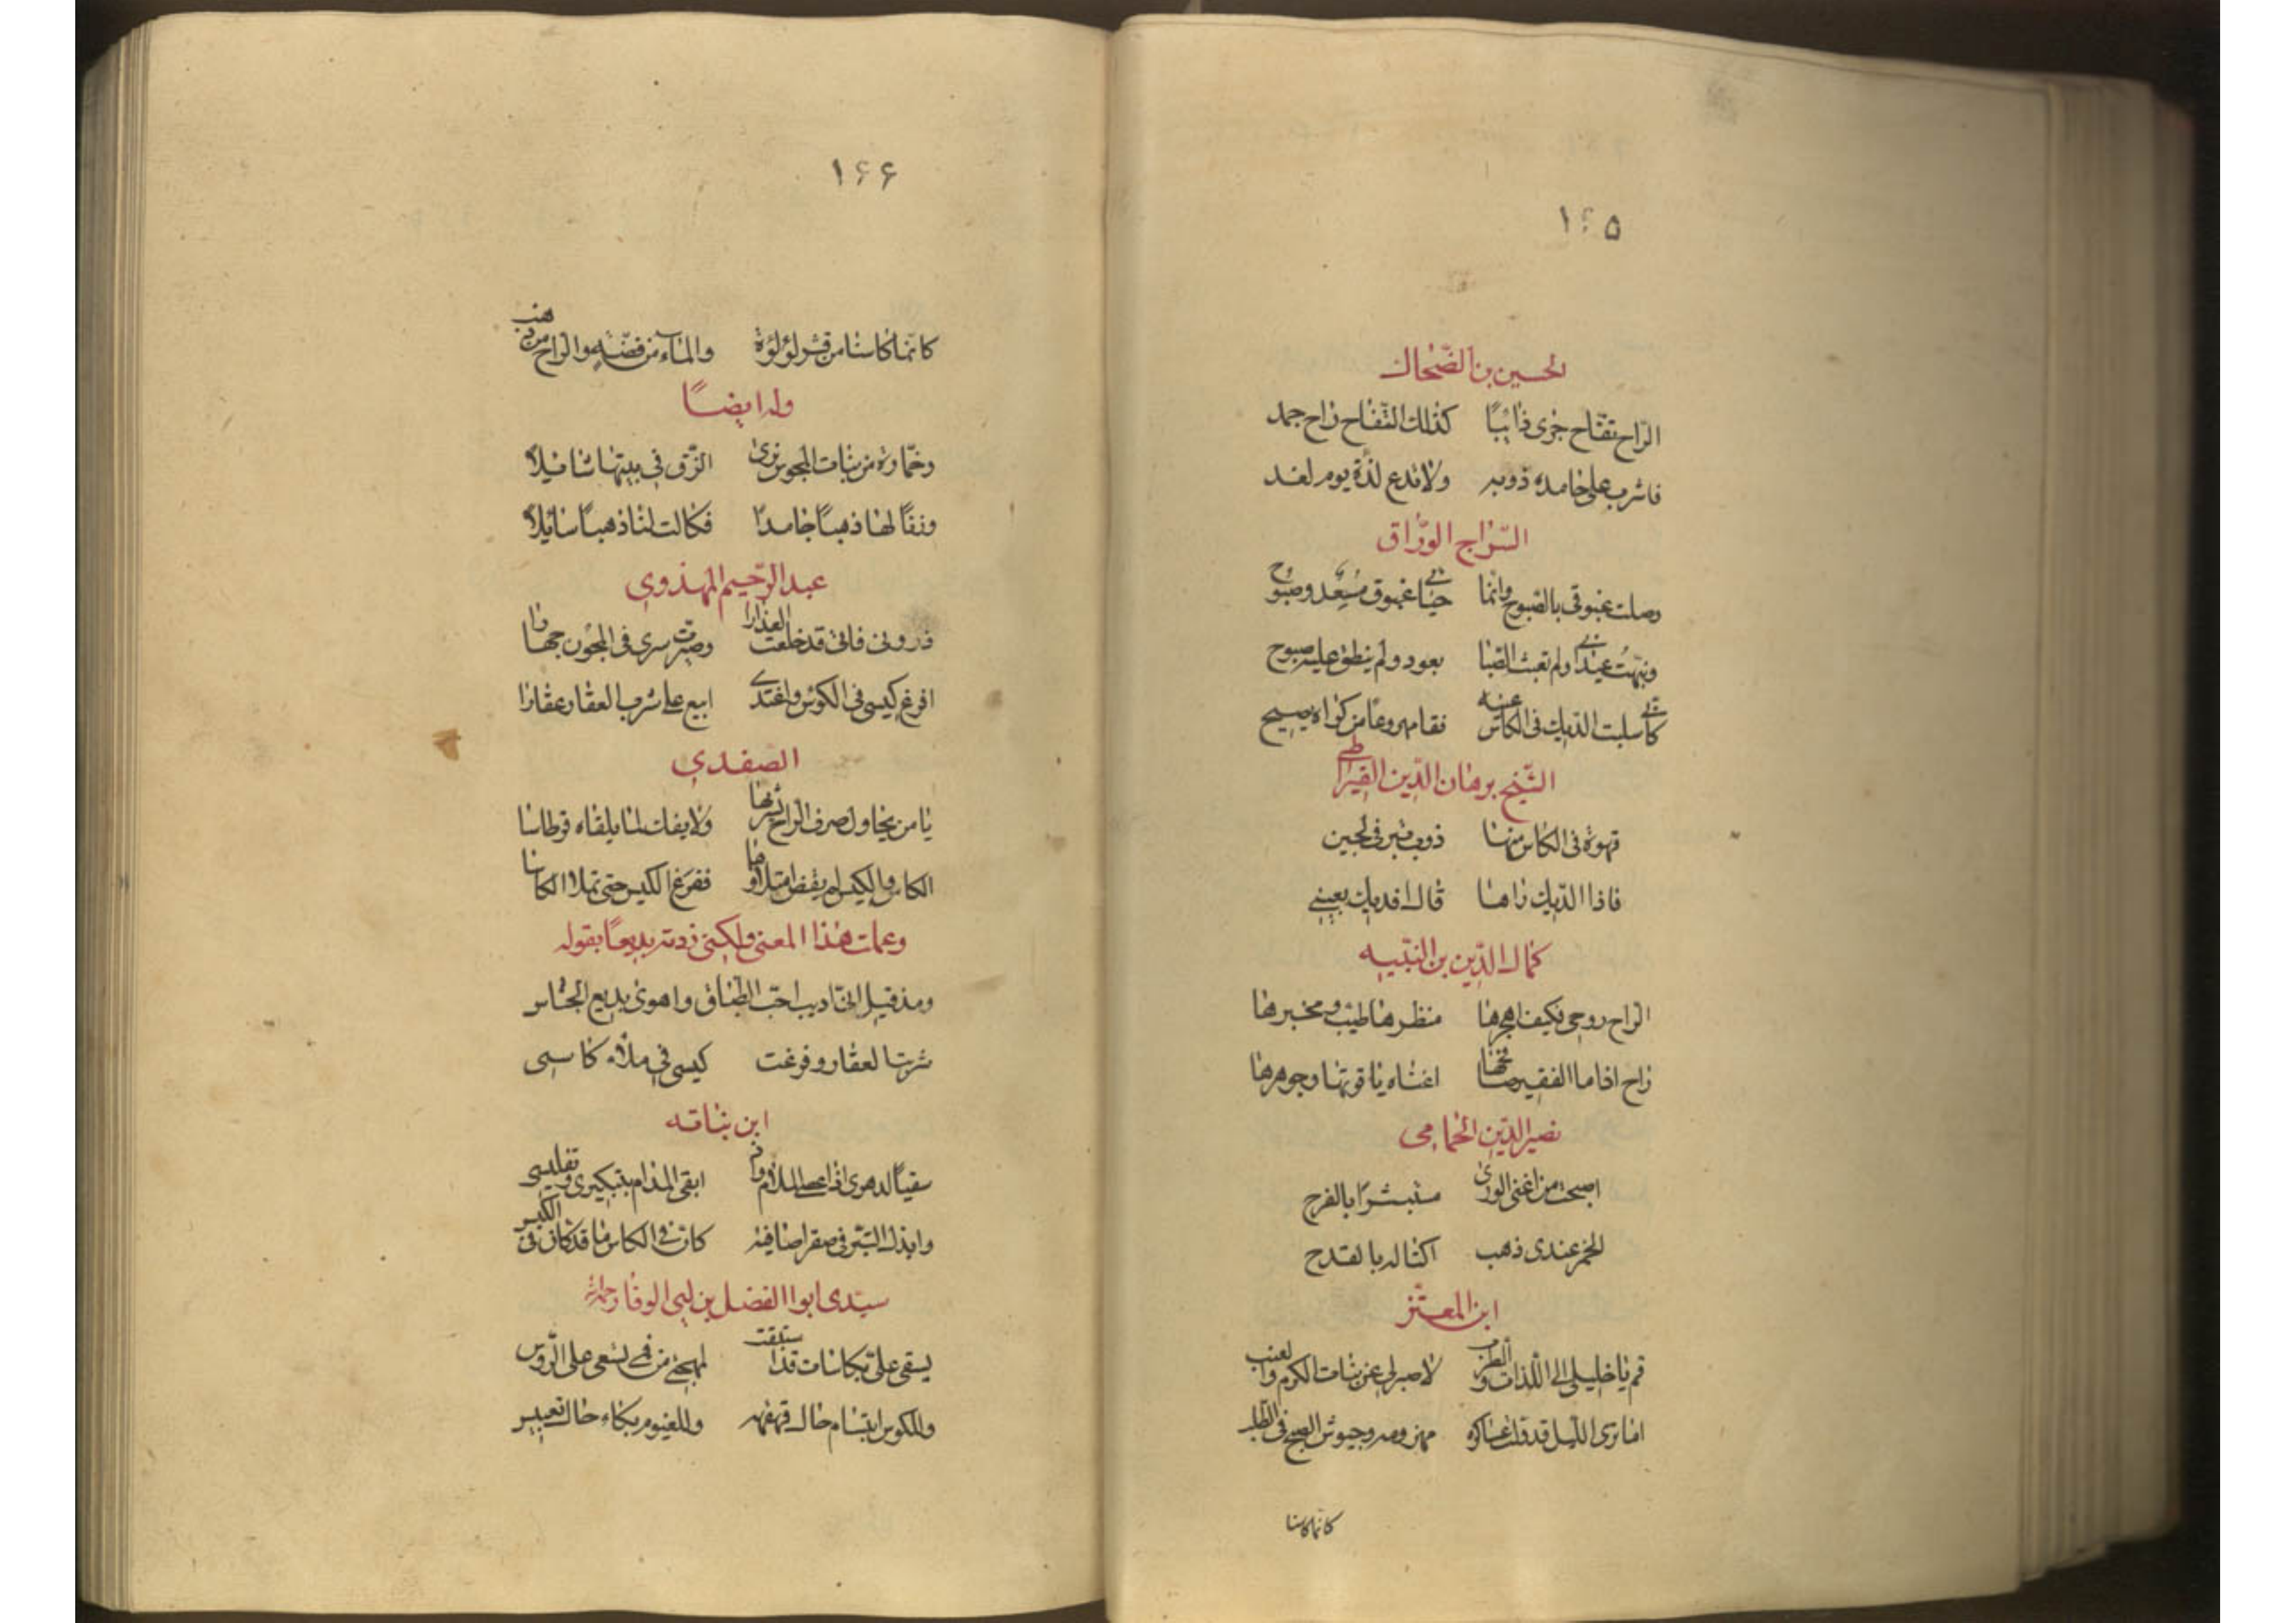 ١٤٥
الحسين بن الضحاك
الراح تفاح جرى ذائبًا كذلك التفاح راح جمد
فاشرب على جامده ذوبه ولا تدع لذة يوم لغد
السراج الوراق
وصلت غبوقي بالصبوح وانما حياتي غبوق مسعد وصبوح
ونبهت عيداني ولم تعبث الصبا بعود ولم ينطق عليه صبوح
كأني سلبت الديك في الكأس عينه فقام مروعًا من كراه يصيح
الشيخ برهان الدين القيراطي
قهوة في الكاس منها ذوب تبر في لجين
فاذا الديك راها قال افديك بعيني
كمال الدين بن النبيه
الراح روحي فكيف اهجرها منظرها طيب ومخبرها
راح اذا ما الفقير صافحها اغناه ياقوتها وجوهرها
نصير الدين الحمامي
اصبحت من اغنى الورى مستبشرًا بالفرح
الخمر عندي ذهب اكتاله بالقدح
ابن المعتز
قم يا خليلي الى اللذات والطرب لا صبر لي عن بنات الكرم والعنب
اما ترى الليل قد ولت عساكره مهزومة وجيوش الصبح في الطلب
كانما كاسنا
١٤٦
كانما كاسنا من قشر لؤلؤة والماء من فضة والراح من ذهب
وله ايضًا
وخمارة من بنات المجوس ترى الزق في بيتها شائلا
وزنا لها ذهبًا جامدًا فكالت لنا ذهبًا سائلا
عبد الرحيم المهدوي
ذروني فاني قد خلعت العذارا وصيرت سري في المجون جهارا
افرغ كيسي في الكوس واغتدي ابيع على شرب العقار عقارا
الصفدي
يا من يحاول صرف الراح يشربها ولا يفك لما يلقاه قرطاسا
الكاس والكيس لم يقض امتلاؤهما ففرغ الكيس حتى تملأ الكاسا
وعملت هذا المعنى ولكني زدته بديعًا بقولي
ومذ قيل اني اديب احب الطباق واهوى بديع الجناس
شربت العقار وفرغت كيسي في ملاء كاسي
ابن نباته
سقيًا لدهري اذ اعصي الملام واذ ابقى المدام بتبكيري وتغليسي
وابذل التبر في صفرا صافية كان في الكاس ما قد كان في الكيس
سيدي ابو الفضل بن ابي الوفا رحمه الله
يسقي علي بكاسات قذا سبقت لمهجتي من في يسعى على الروس
وللكوس ابتسام حال قهقهة وللغيوم بكاء حال تعبيس